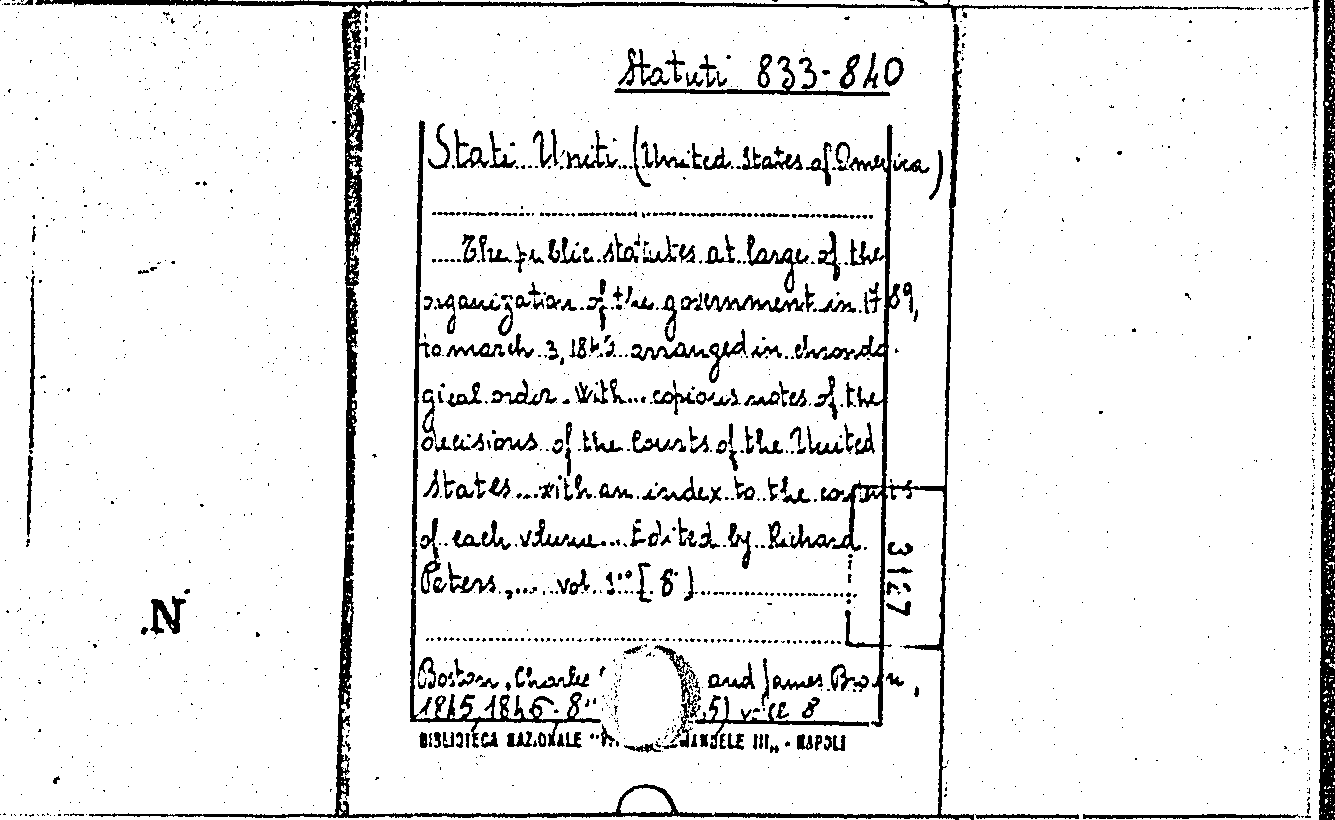 Statuti 833-840
Stati Uniti (United States of America)
....The public statutes at large of the
organization of the government in 1789,
to march 3, 1845 arranged in chronolo-
gical order. With... copious notes of the
decisions of the Courts of the United
States... with an index to the contents
of each volume... Edited by Richard
Peters,... vol. 1° [8]
3127
Boston, Charles and James Brown,
1845, 1846. 8° 5) v. 8
BIBLIOTECA NAZIONALE "VI MANUELE III„ - NAPOLI
.N